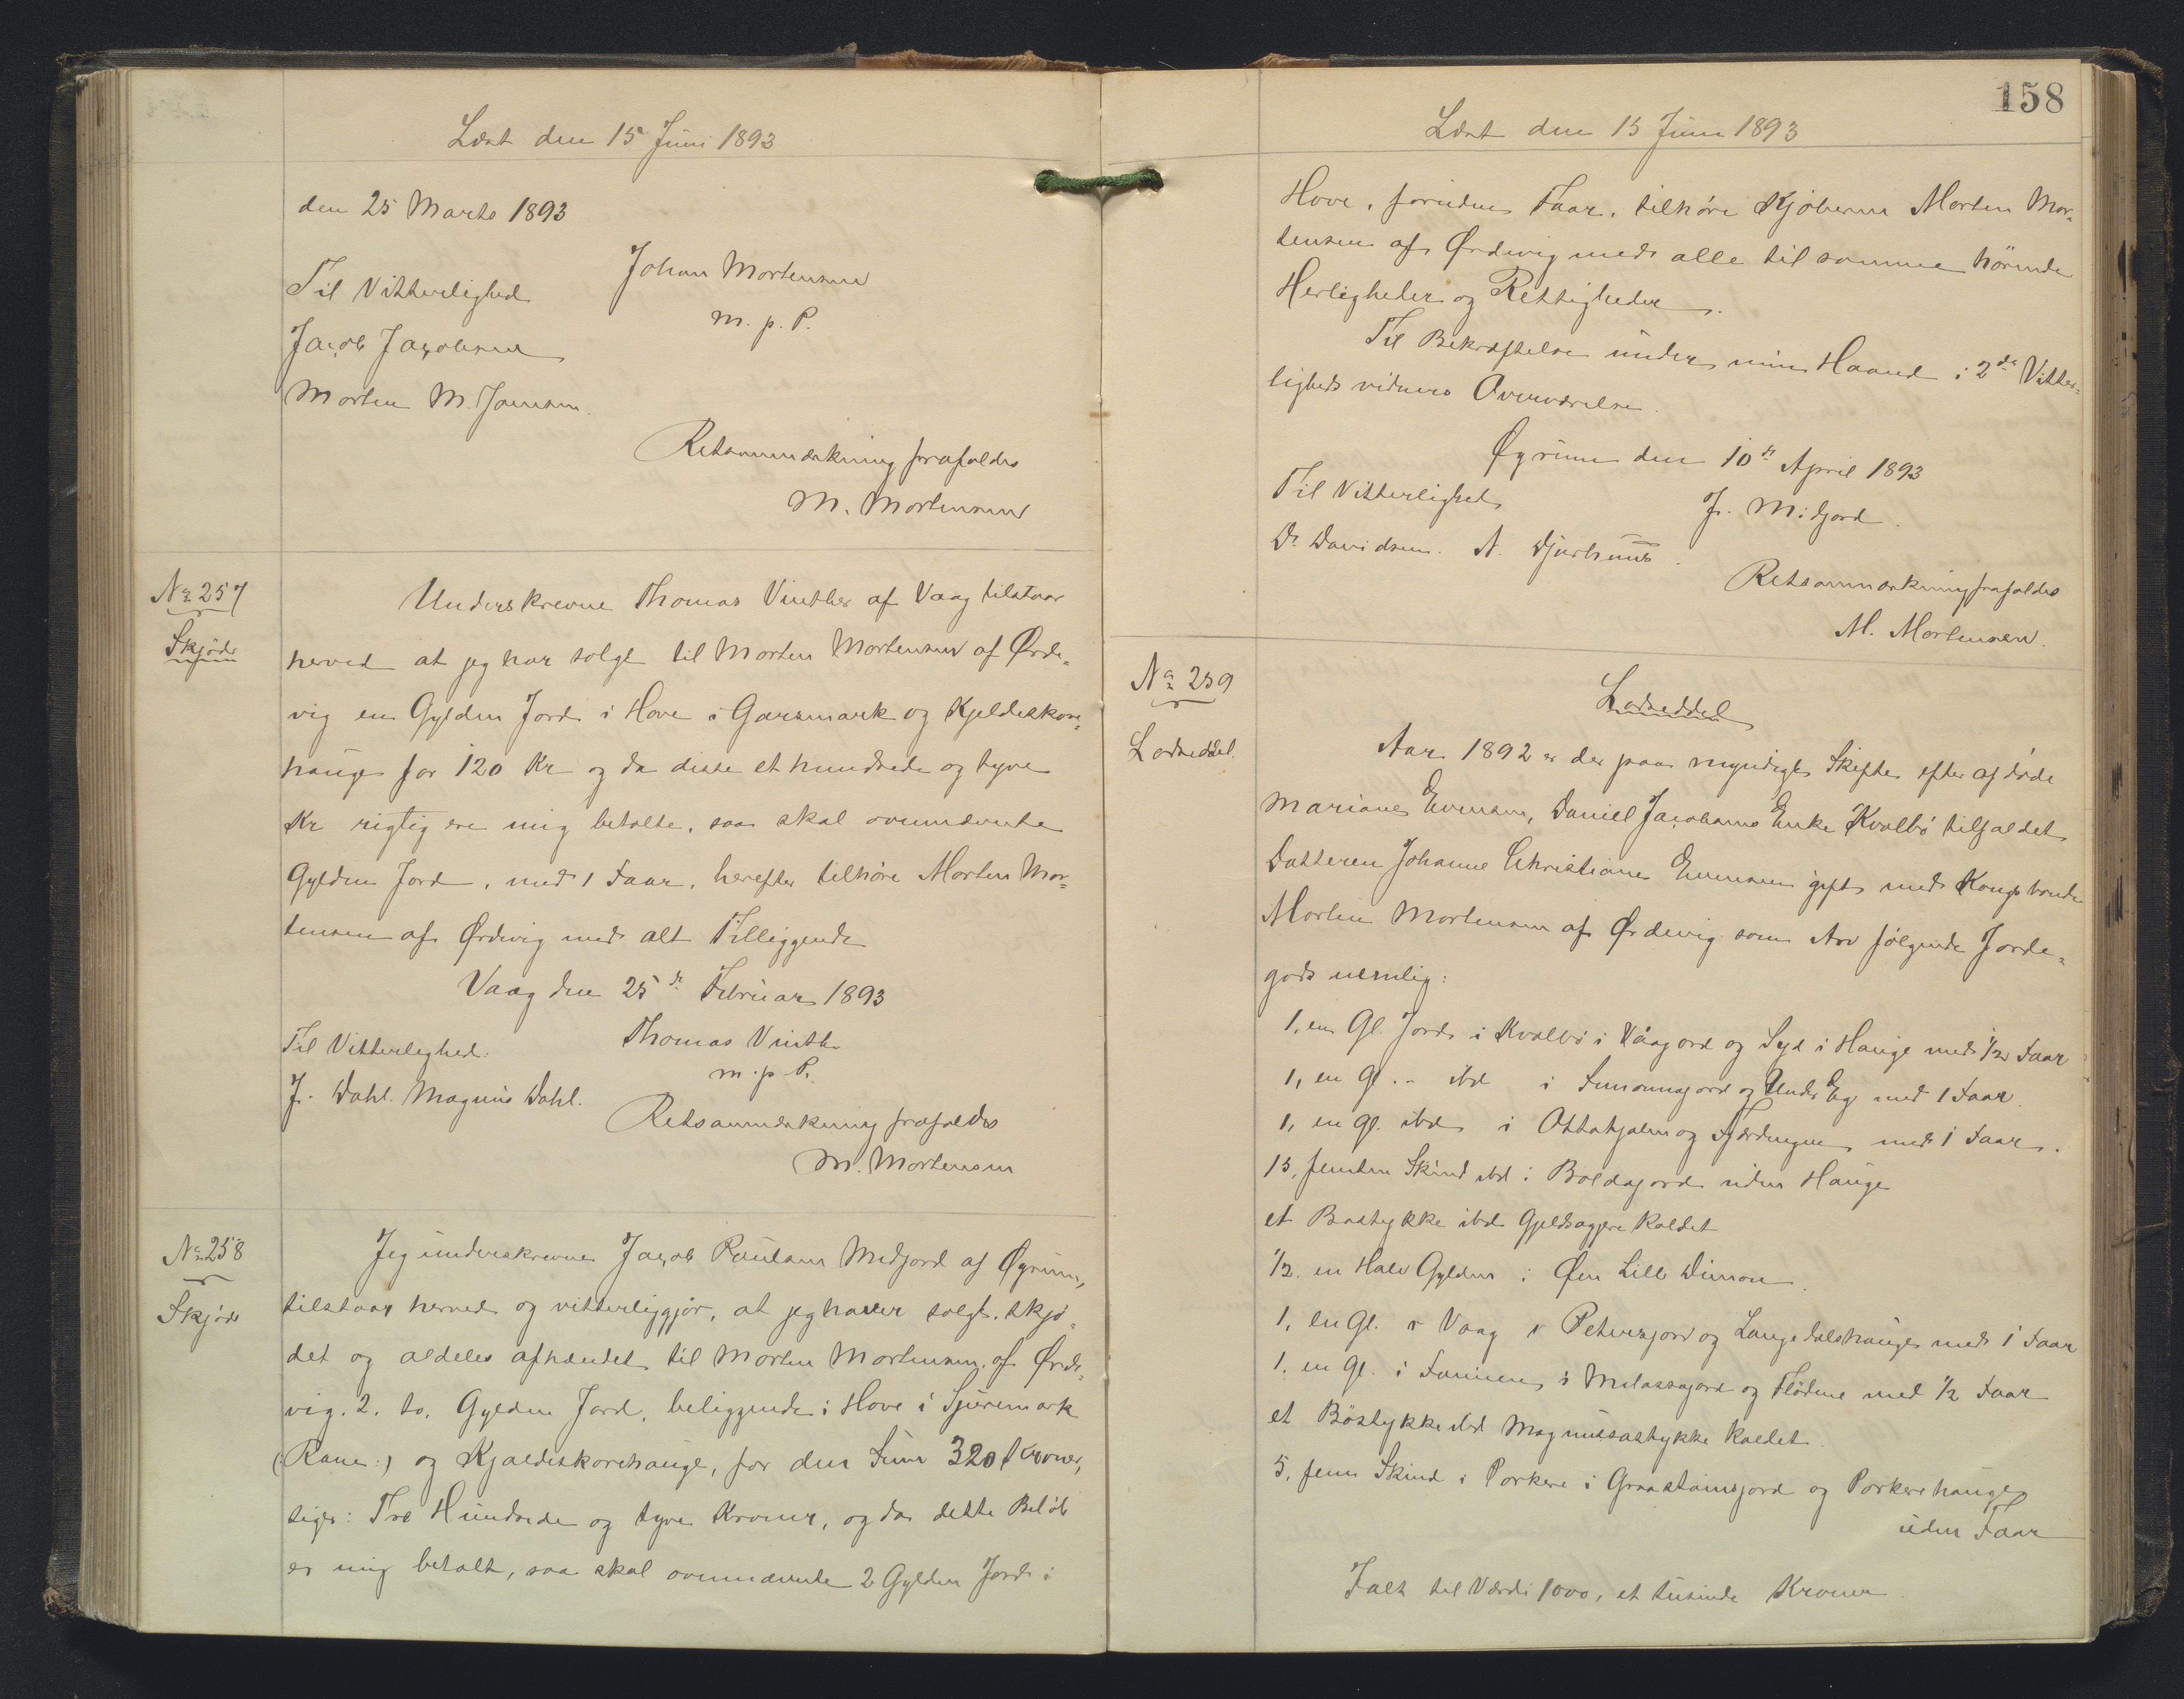 Læst den 15 Juni 1893
den 25 Marts 1893
Johan Mortensen
m. p. P.
Til Vitterlighed
Jacob Jacobsen
Morten M. Joensen.
Retsanmærkning frafaldes
M. Mortensen
No 257
Skjøde
Underskrevne Thomas Vinther af Vaag tilstaar
herved at jeg har solgt til Morten Mortensen af Ørde-
vig en Gylden Jord i Hove i Garsmark og Kjeldeskore-
hauge for 120 Kr og da disse et hundrede og tyve
Kr rigtig ere mig betalte, saa skal ovennævnte
Gylden Jord, med 1 Faar, herefter tilhøre Morten Mor-
tensen af Ørdevig med alt Tilliggende
Vaag den 25de Februar 1893
Til Vitterlighed:
Thomas Vinther
m. p. P.
J. Dahl. Magnus Dahl.
Retsanmærkning frafaldes
M. Mortensen
No 258
Skjøde
Jeg underskrevne Jacob Poulsen Midjord af Øyrum,
tilstaar herved og vitterliggjør, at jeg haver solgt, skjø-
det og aldeles afhændet til Morten Mortensen afØrde-
vig. 2. to. Gylden Jord, beliggende i Hove i Sjuremark
(: Rane :) og Kjældeskorehauge, for den Sum 320 Kroner,
siger: Tre Hundrede og tyve Kroner, og da dette Beløb
er mig betalt, saa skal ovennævnte 2 Gylden Jord i
158
Læst den 15 Juni 1893
Hove, foruden Faar, tilhøre Kjøberen Morten Mor-
tensen af Ørdevig med alle til samme hørende
Herligheder og Rettigheder.
Til Bekræftelse under min Haand i 2de Vitter-
ligheds vidners Overværelse.
Øyrum den 10de April 1893
Til Vitterlighed
J. Midjord.
D. Davidsen. N. Djurhuus.
Retsanmærkning frafaldes
M. Mortensen.
No 259
Lodseddel.
Lodseddel
Aar 1892 er der paa myndigt Skifte efter afdøde
Mariane Evensen, Daniel Jacobsens Enke Kvalbø tilfaldet
Datteren Johanne Christiane Evensen gift med Kongsbonde
Morten Mortensen af Ørdevig som Arv følgende Jorde-
gods nemlig:
1, en Gl. Jord i Kvalbø i Vaagord og Syd i Hauge med 1/2 Faar
1, en Gl. - ibd i Simonnagord og Under Eg med 1 Faar.
1, en Gl. ibd i Ottahjalm og Fjerdingen med 1 Faar.
15, femten Skind ibd i Boldagord uden Hauge
et Bøstykke ibd Gjeldsagjere kaldet
1/2. en Halv Gylden i Øen Lille Dimon.
1, en Gl. i Vaag i Petersjord og Langedalshauge med 1 Faar
1, en Gl. i Famien i Melassagord og Flødene med 1/2 Faar
et Bøstykke ibd Magnussastykke kaldet.
5, fem Skind i Porkere i Graasteinsjord og Porkerehauge
uden Faar
Ialt til Værdi 1000, et tusinde Kroner.